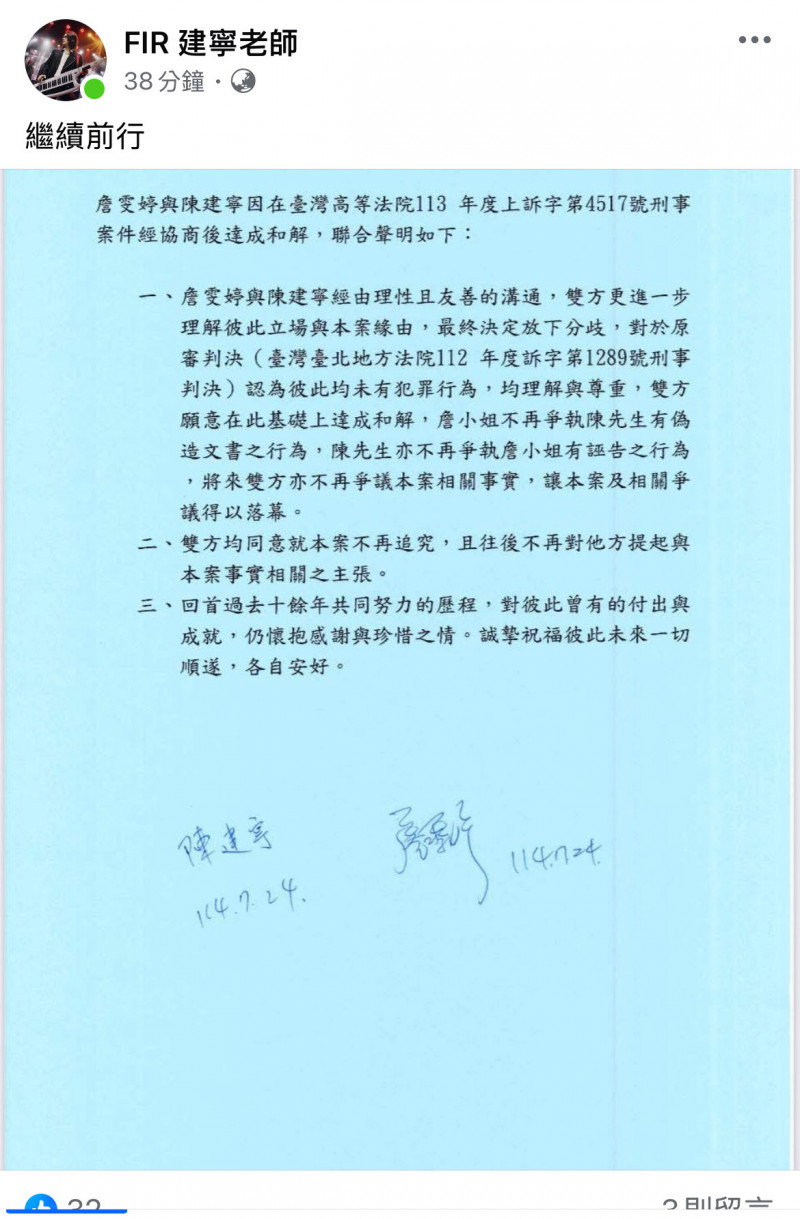 FIR 建寧老師
38 分鐘 ·
繼續前行
詹雯婷與陳建寧因在臺灣高等法院113 年度上訴字第4517號刑事
案件經協商後達成和解，聯合聲明如下：
一、詹雯婷與陳建寧經由理性且友善的溝通，雙方更進一步
理解彼此立場與本案緣由，最終決定放下分歧，對於原
審判決（臺灣臺北地方法院112 年度訴字第1289號刑事
判決）認為彼此均未有犯罪行為，均理解與尊重，雙方
願意在此基礎上達成和解，詹小姐不再爭執陳先生有偽
造文書之行為，陳先生亦不再爭執詹小姐有誣告之行為
，將來雙方亦不再爭議本案相關事實，讓本案及相關爭
議得以落幕。
二、雙方均同意就本案不再追究，且往後不再對他方提起與
本案事實相關之主張。
三、回首過去十餘年共同努力的歷程，對彼此曾有的付出與
成就，仍懷抱感謝與珍惜之情。誠摯祝福彼此未來一切
順遂，各自安好。
陳建寧
114.7.24.
詹雯婷 114.7.24.
32
2則留言